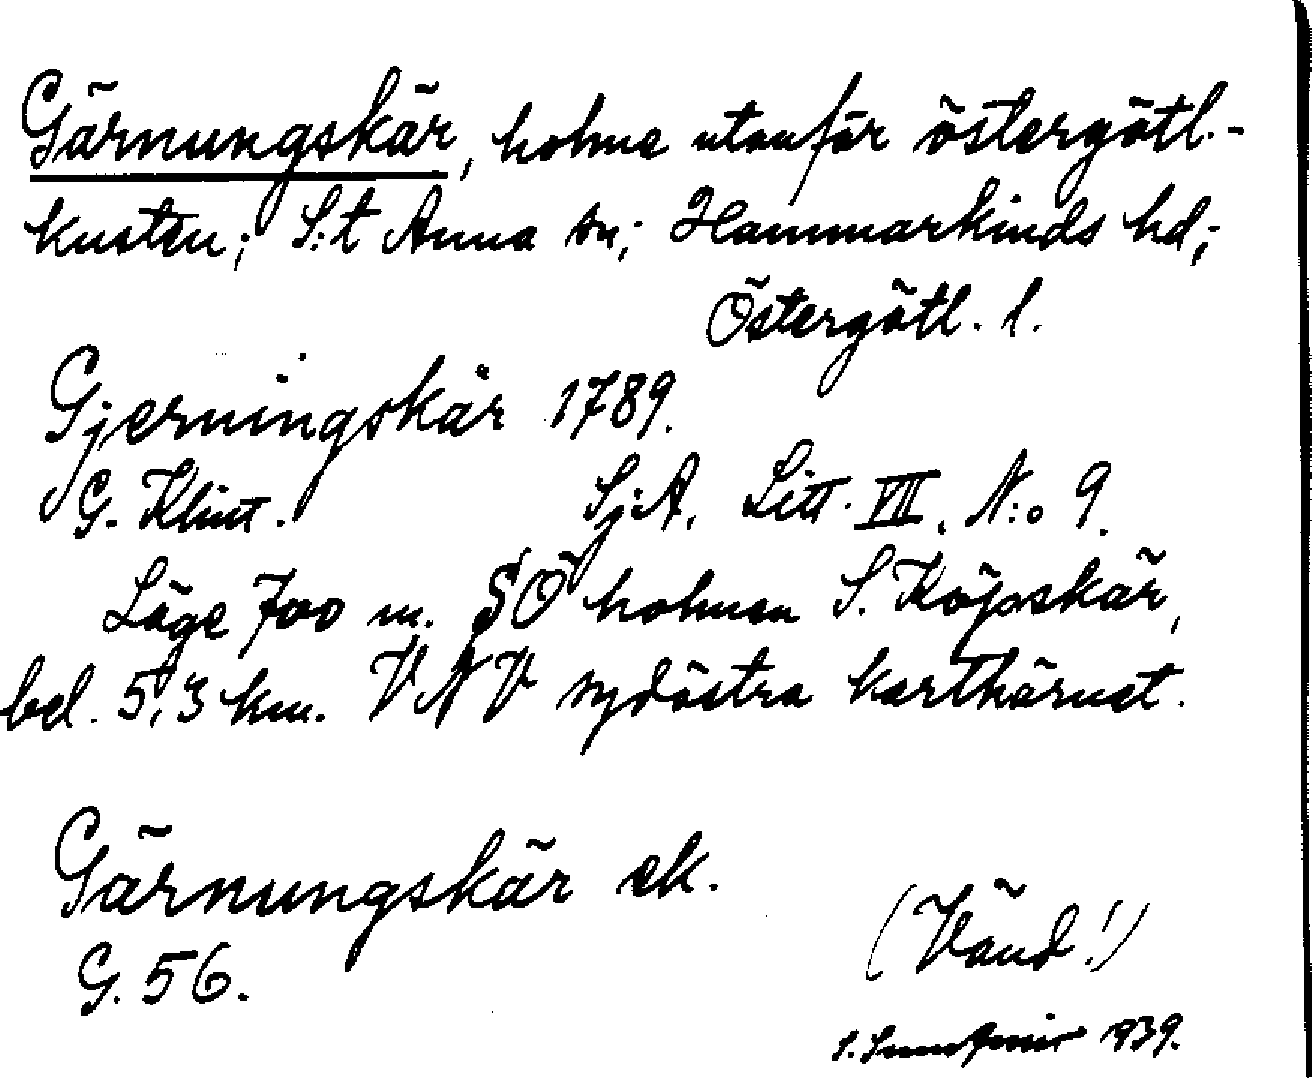 Gärnungskär, holme utanför östergötl.-
kusten; S:t Anna sn; Hammarkinds hd;
Östergötl. l.
Gjerningskär 1789.
G. Klint. Sj:A. Litt. VII. N:o 9.
Läge 700 m. SÖ holmen S. Köpskär,
bel. 5,3 km. VNV sydöstra karthörnet.
Gärnungskär ek.
G. 56.
(Vänd!)
1939.